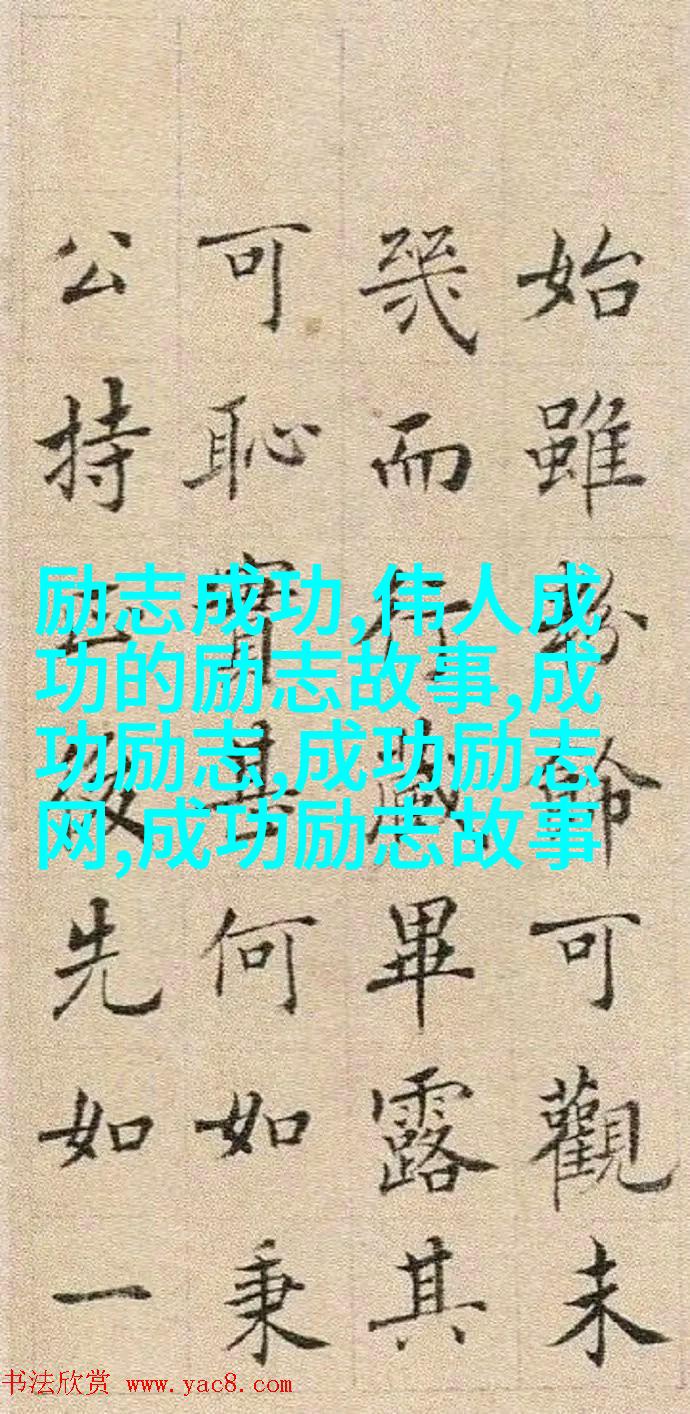 始雖粉飾可觀未
幾而行藏畢露其
可恥實甚何如秉
公持正後先如一
励志成功,伟人成
功的励志故事,成
功励志,成功励志
网,成功励志故事
书法欣赏 www.yac8.com